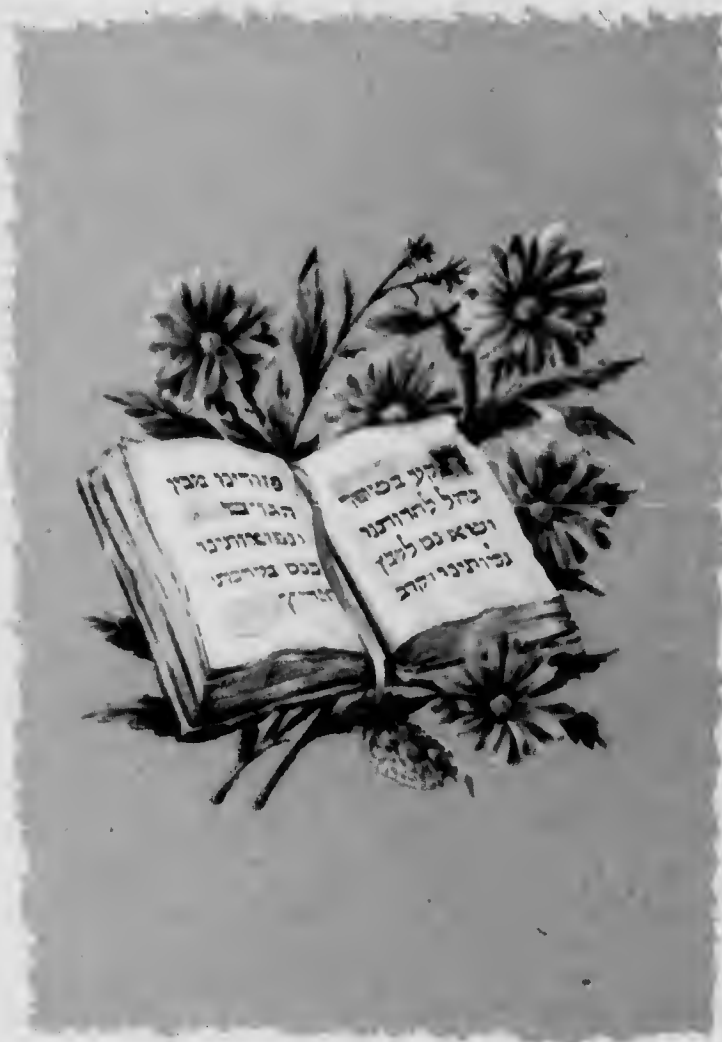 תקע בשופר
גדול לחרותנו
ושא נס לקבץ
גלותינו וקרב
פזורינו מבין
הגוים
ונפוצותינו
כנס מירכתי